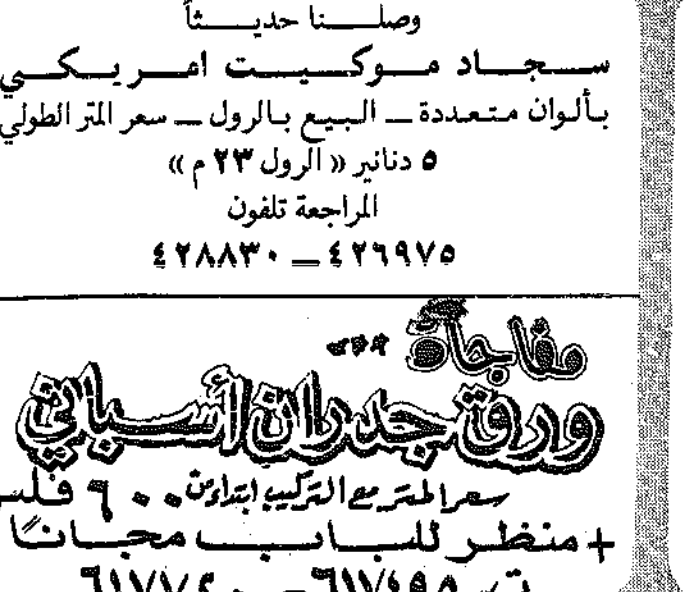 وصلنا حديثاً
سجاد موكيت امريكي
بألوان متعددة ــ البيع بالرول ــ سعر المتر الطولي
٥ دنانير « الرول ٢٣ م »
المراجعة تلفون
٤٢٦٩٧٥ ــ ٤٢٨٨٣٠
مفاجأة
ورق جدران أسباني
سعر المتر مع التركيب ابتداء من ٦٠٠ فلس
+ منظر للباب مجاناً